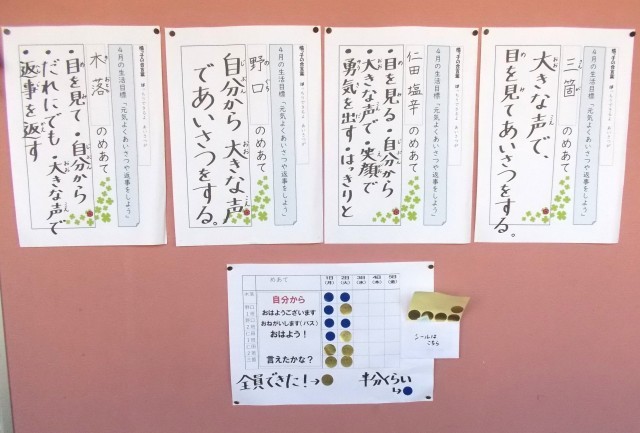 4月の生活目標「元気よくあいさつや返事をしよう」
三箇 のめあて
大きな声で、
目を見てあいさつをする。
4月の生活目標「元気よくあいさつや返事をしよう」
仁田塩辛 のめあて
・目を見る・自分から
・大きな声で・笑顔で
・勇気を出す・はっきりと
4月の生活目標「元気よくあいさつや返事をしよう」
野口 のめあて
自分から大きな声
であいさつをする。
4月の生活目標「元気よくあいさつや返事をしよう」
木落 のめあて
・目を見て・自分から
・だれにでも・大きな声で
・返事を返す
めあて 1日(月) 2日(火) 3日(水) 4日(木) 5日(金)
自分から
おはようございます
おねがいします(バス)
おはよう!
言えたかな?
全員できた!→
半分くらい
シールは
こちら